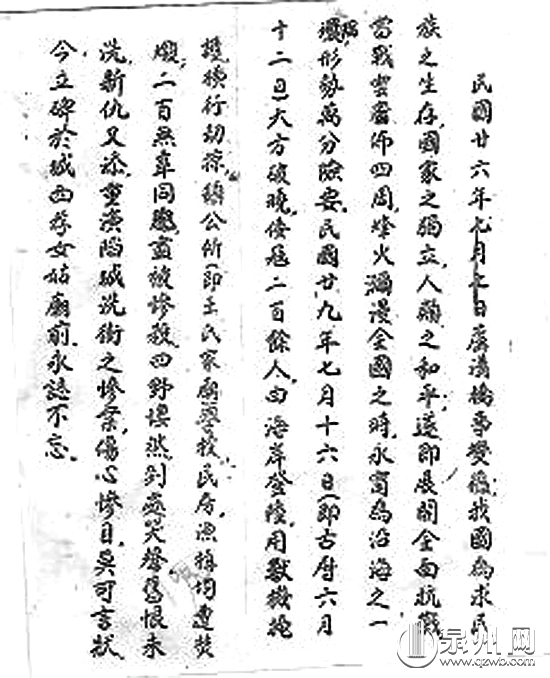 民國廿六年七月七日蘆溝橋事變後，我國為求民
族之生存，國家之獨立，人類之和平，遂即展開全面抗戰
當戰雲密佈四周，烽火瀰漫全國之時，永寧為沿海之一
環，形勢萬分險要，民國廿九年七月十六日（即古曆六月
十二日）天方破曉，倭寇二百餘人，由海岸登陸，用獸機掩
護，橫行劫掠，鎮公所（即王氏家廟）學校，民房，漁稱均遭焚
燬，二百無辜同胞，盡被慘殺，四野悽然，到處哭聲，舊恨未
洗，新仇又添，重演陷城洗街之慘案，傷心慘目，莫可言狀，
今立碑於城西孝女姑廟前，永誌不忘。
泉州网
www.qzwb.com